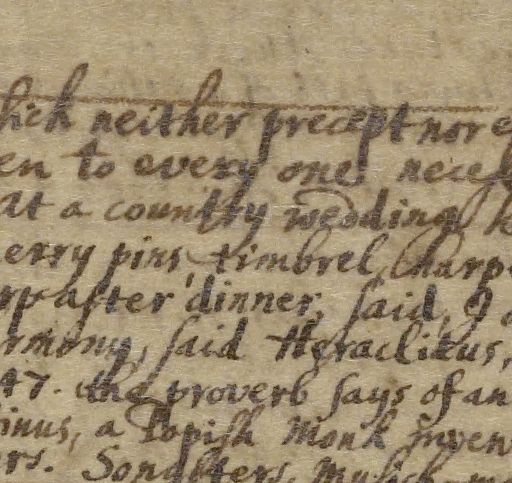 hich neither precept nor e
en to every one, nece
at a country wedding
erry pins, timbrel, harp
rp after dinner, said, I
rmony, said Heraclitus,
47. the proverb says of an
inus, a Popish Monk inven
ers. Songsters, musick